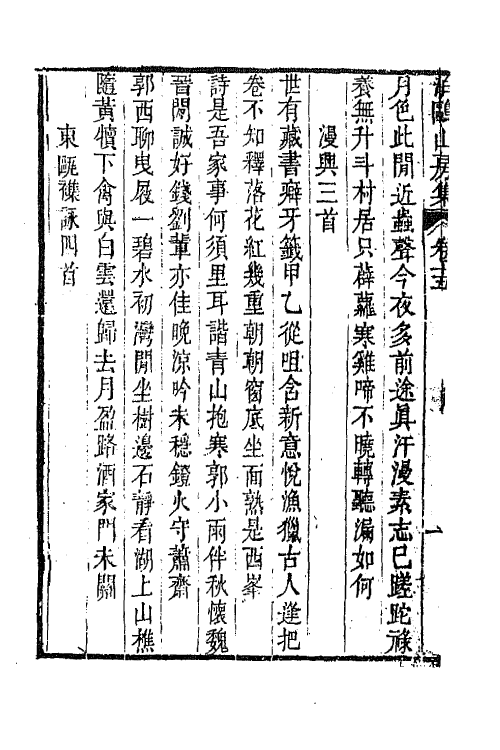 山房集 卷十五 一
月色此閒近蟲聲今夜多前途眞汗漫素志已蹉跎祿
養無升斗村居只薜蘿寒雞啼不曉轉聽漏如何
漫興三首
世有藏書癖牙籤甲乙從咀含新意悅漁獵古人逢把
卷不知釋落花紅幾重朝朝窗底坐面熟是西峯
詩是吾家事何須里耳諧青山抱寒郭小雨伴秋懷魏
晉閒誠好錢劉輩亦佳晚涼吟未穩鐙火守蕭齋
郭西聊曳屐一碧水初灣閒坐樹邊石靜看湖上山樵
隨黃犢下禽與白雲還歸去月盈路酒家門未關
東甌襍詠四首